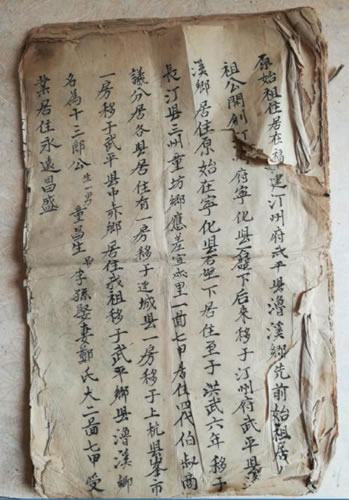 原始祖住居在福建汀州府武平县澛溪鄉先前始祖居
祖公開創汀府寧化县石壁下后來移于汀州府武平县澛
溪鄉居住原始在寧化县石壁下居住至于洪武六年移于
長汀县三州童坊鄉應差宣成里一啚七甲居住四代伯叔商
議分居各县居住有一房移于連城县一房移于上杭县峯市
一房移于武平县中赤鄉居住我祖移于武平鄉县澛溪鄉
名為十三郎公生一男童昌生男李孫娶妻鄭氏大二啚七甲受
業居住永遠昌盛